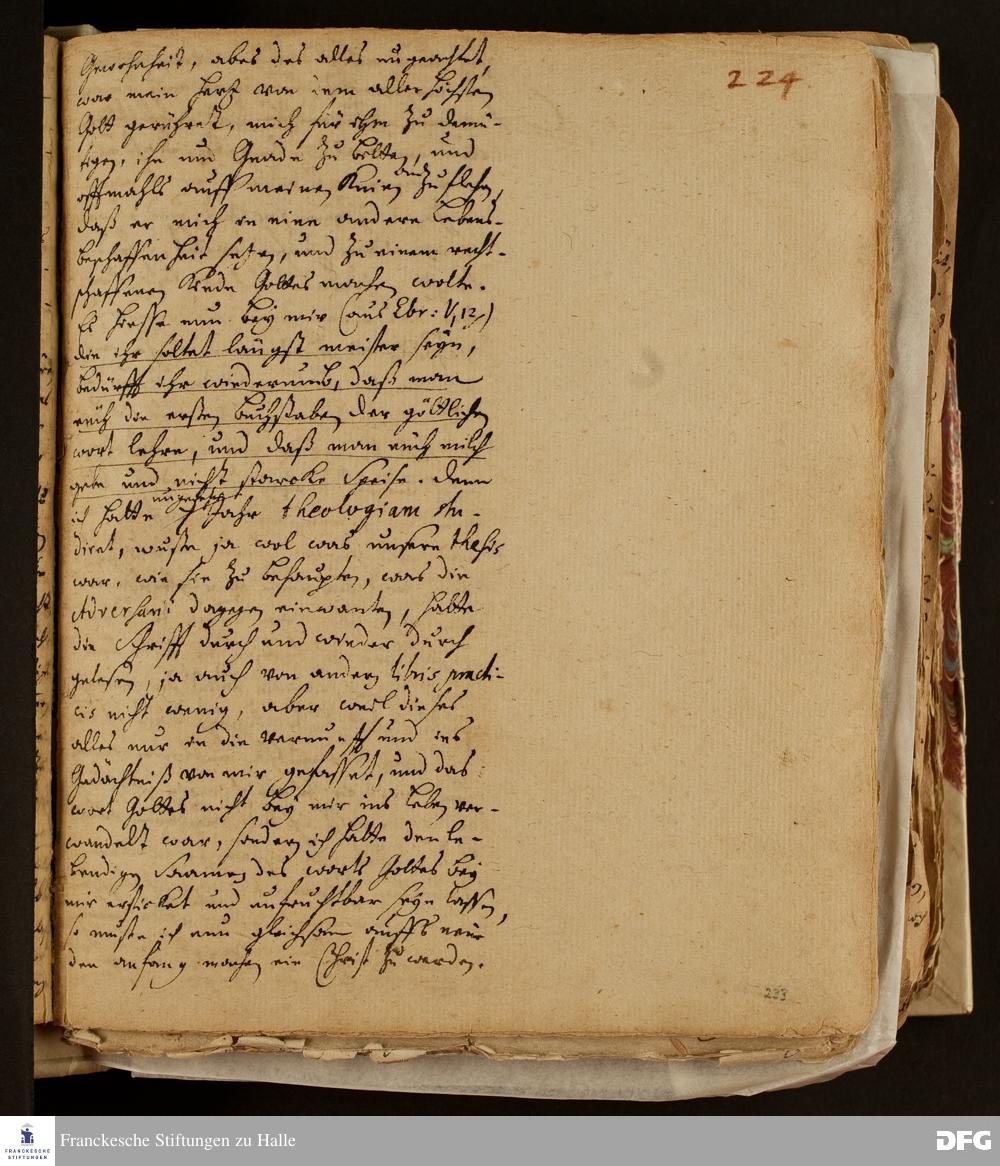 224
Gewohnheit, aber des alles ungeachtet,
war mein Hertz von dem allerhöchsten
Gott gerühret, mich für ihm zu demü-
tigen, ihn um Gnade zu bitten, und
offtmahls auff meinen Knien auch zu flehen,
daß er mich in eine andere Lebens-
beschaffenheit setzen, und zu einem recht-
schaffenen Kinde Gottes machen wolte.
Es hiesse nun bey mir (aus Ebr: V, 12.)
die ihr soltet längst meister seyn,
bedürfft ihr wiederumb, daß man
euch die ersten buchstaben der göttlichen
wort lehre, und daß man euch milch
gebe und nicht starcke Speise. Denn
ich hatte ungefehr 7 Jahr theologiam stu-
diret, wuste ja wol was unsere thesis
war, wie sie zu behaupten, was die
Adversarii dagegen einwanten, hatte
die Schrifft durch und wieder durch
gelesen, ja auch von andern libris practi-
cis nicht wenig, aber weil dieses
alles nur in die vernunfft und ins
Gedächtniß von mir gefasset, und das
wort Gottes nicht bey mir ins Leben ver-
wandelt war, sondern ich hatte den le-
bendigen Saamen des worts Gottes bey
mir ersticket und unfruchtbar seyn lassen,
so muste ich nun gleichsam auffs neue
den anfang machen ein Christ zu werden.
233
FRANCKESCHE
STIFTUNGEN
Franckesche Stiftungen zu Halle
DFG